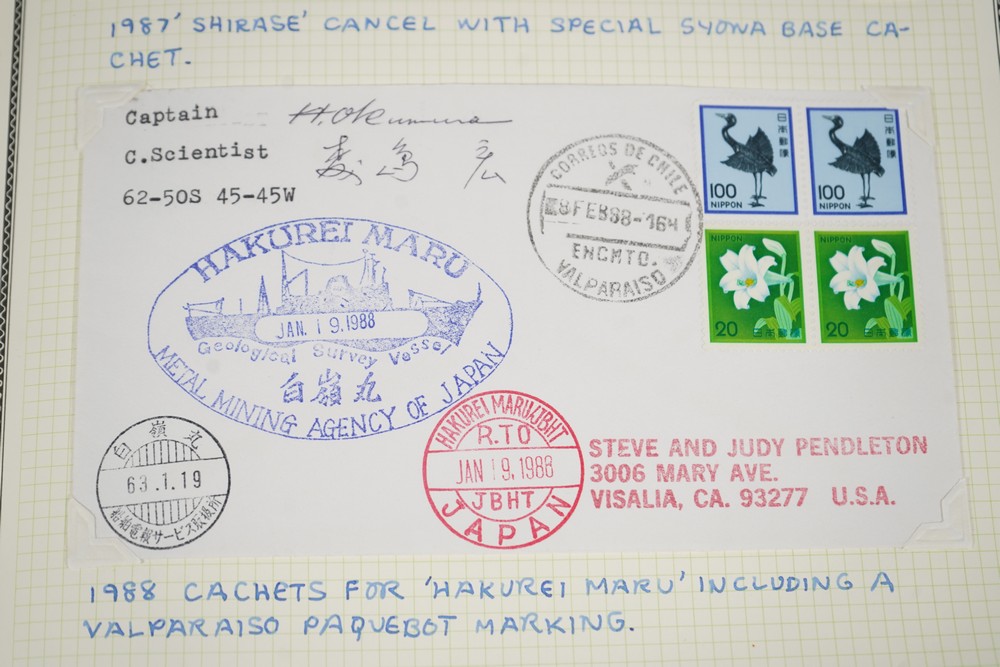 1987 'SHIRASE' CANCEL WITH SPECIAL SYOWA BASE CA-
CHET.
Captain H. Okumura
C.Scientist 島 宏
62-50S 45-45W
CORREOS DE CHILE
8 FEB 88-16H
ENCMTO.
VALPARAISO
日本郵便
100
NIPPON
日本郵便
100
NIPPON
NIPPON
20 日本郵便
NIPPON
20 日本郵便
HAKUREI MARU
JAN. 19.1988
Geological Survey Vessel
白嶺丸
METAL MINING AGENCY OF JAPAN
白嶺丸
63.1.19
船舶電報サービス取扱所
HAKUREI MARU/JBHT
R.TO
JAN 19.1988
JBHT
JAPAN
STEVE AND JUDY PENDLETON
3006 MARY AVE.
VISALIA, CA. 93277 U.S.A.
1988 CACHETS FOR 'HAKUREI MARU' INCLUDING A
VALPARAISO PAQUEBOT MARKING.